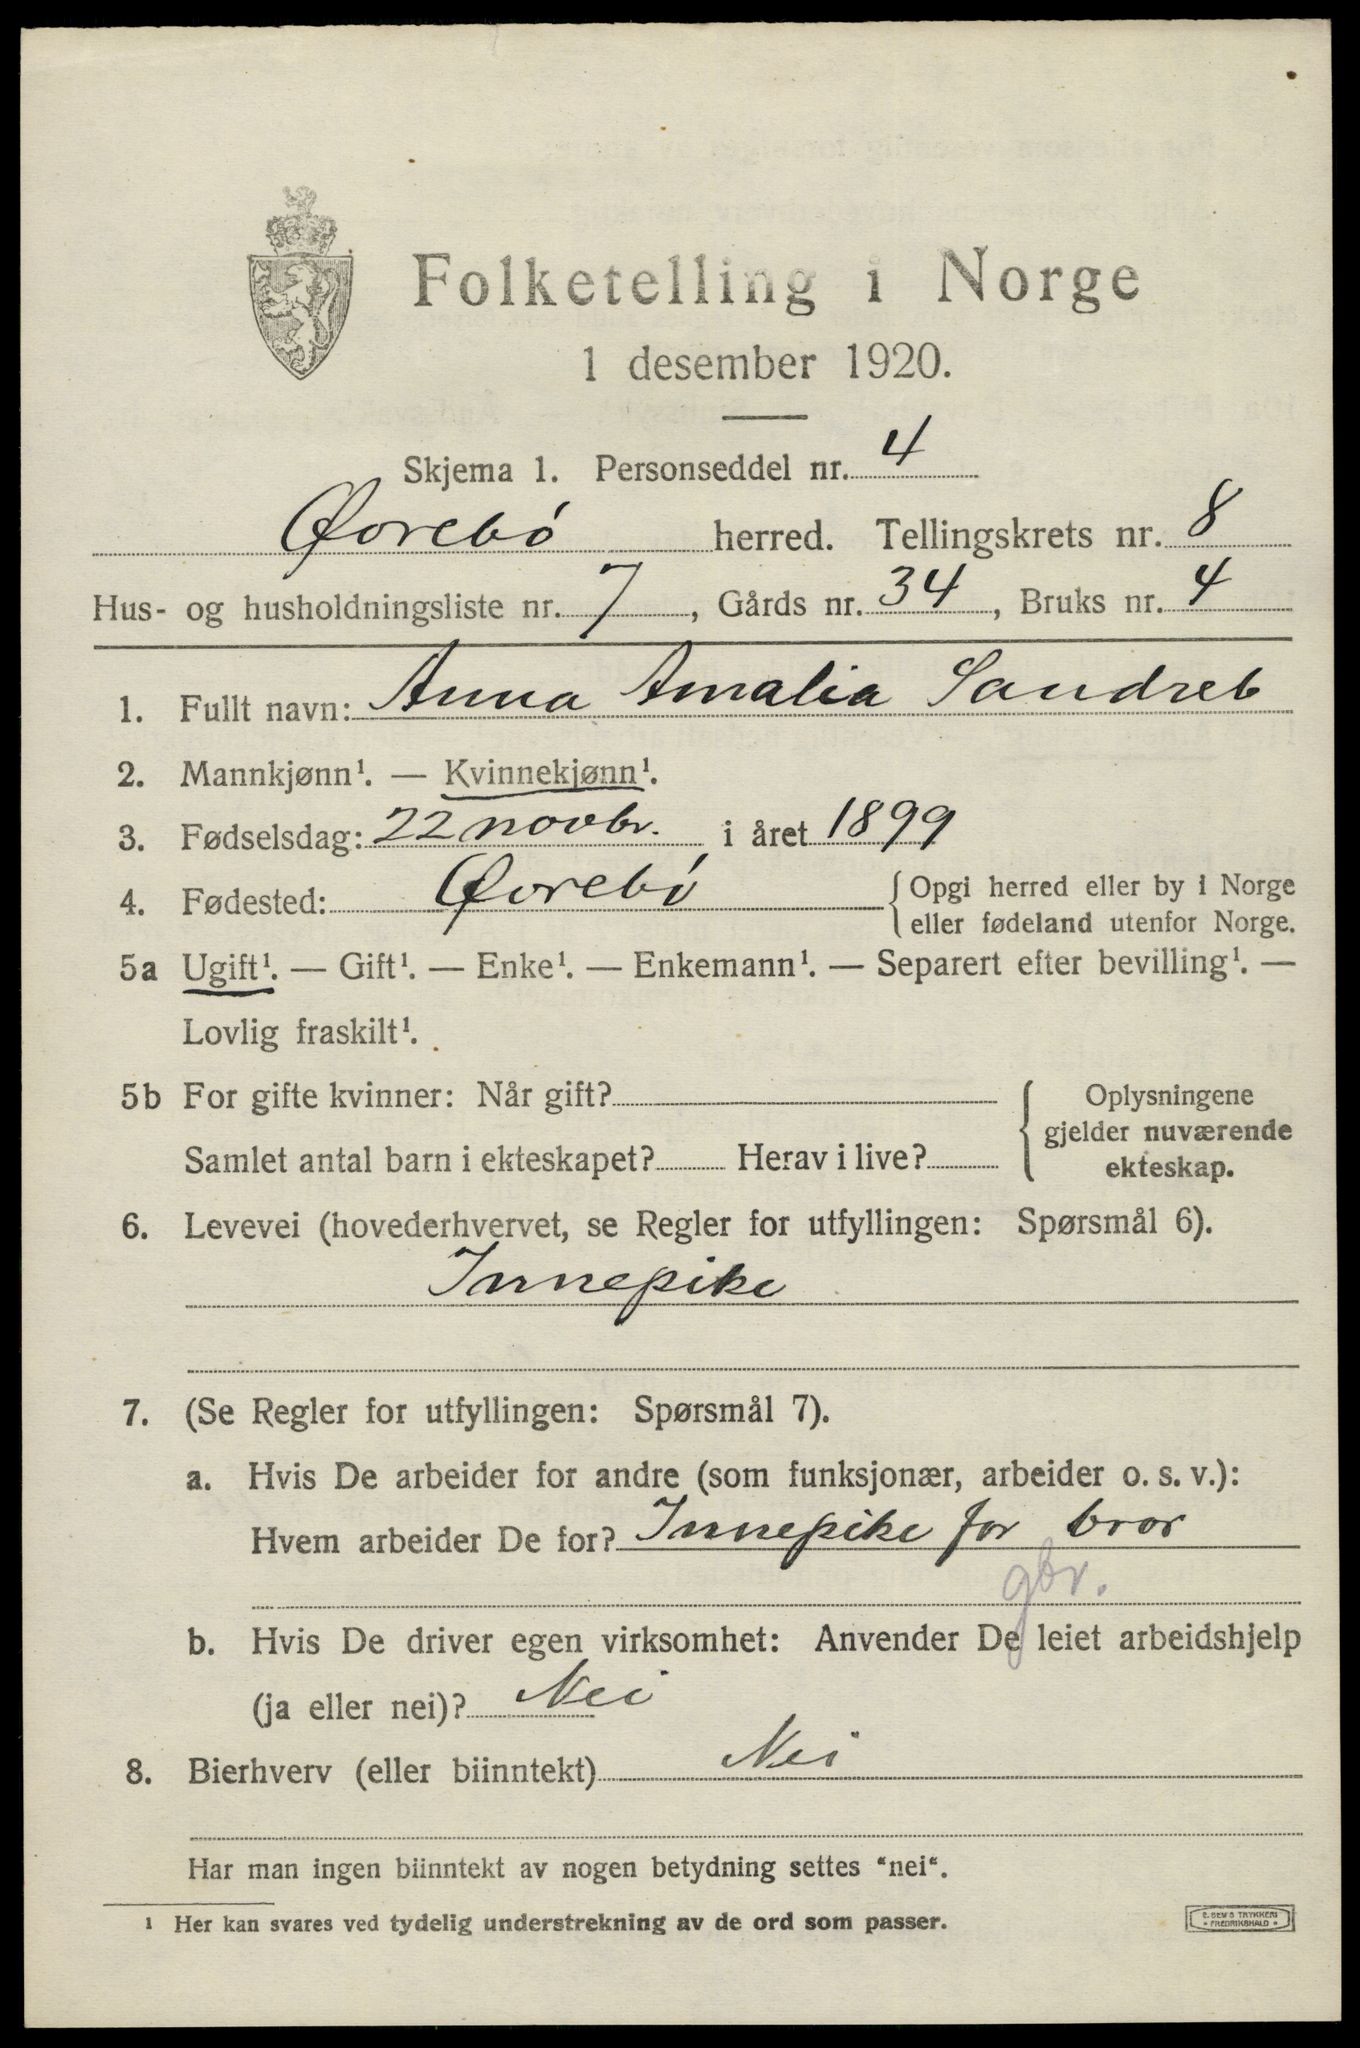 Folketelling i Norge
1 desember 1920.
Skjema 1. Personseddel nr. 4
Øvrebö herred. Tellingskrets nr. 8
Hus- og husholdningsliste nr. 7, Gårds nr. 34, Bruks nr. 4
1. Fullt navn: Anna Amalia Sandreb
2. Mannkjønn¹. — Kvinnekjønn¹.
3. Fødselsdag: 22 novbr. i året 1899
4. Fødested: Øvrebö {Opgi herred eller by i Norge
eller fødeland utenfor Norge.
5a Ugift¹. — Gift¹. — Enke¹. — Enkemann¹. — Separert efter bevilling¹. —
Lovlig fraskilt¹.
5b For gifte kvinner: Når gift?
Samlet antal barn i ekteskapet? Herav i live?
Oplysningene
gjelder nuværende
ekteskap.
6. Levevei (hovederhvervet, se Regler for utfyllingen: Spørsmål 6).
Innepike
7. (Se Regler for utfyllingen: Spørsmål 7).
a. Hvis De arbeider for andre (som funksjonær, arbeider o. s. v.):
Hvem arbeider De for? Innepike for bror
gbr.
b. Hvis De driver egen virksomhet: Anvender De leiet arbeidshjelp
(ja eller nei)? Nei
8. Bierhverv (eller biinntekt) Nei
Har man ingen biinntekt av nogen betydning settes "nei".
¹ Her kan svares ved tydelig understrekning av de ord som passer.
TRYKKERI
• FREDRIKSHALD •